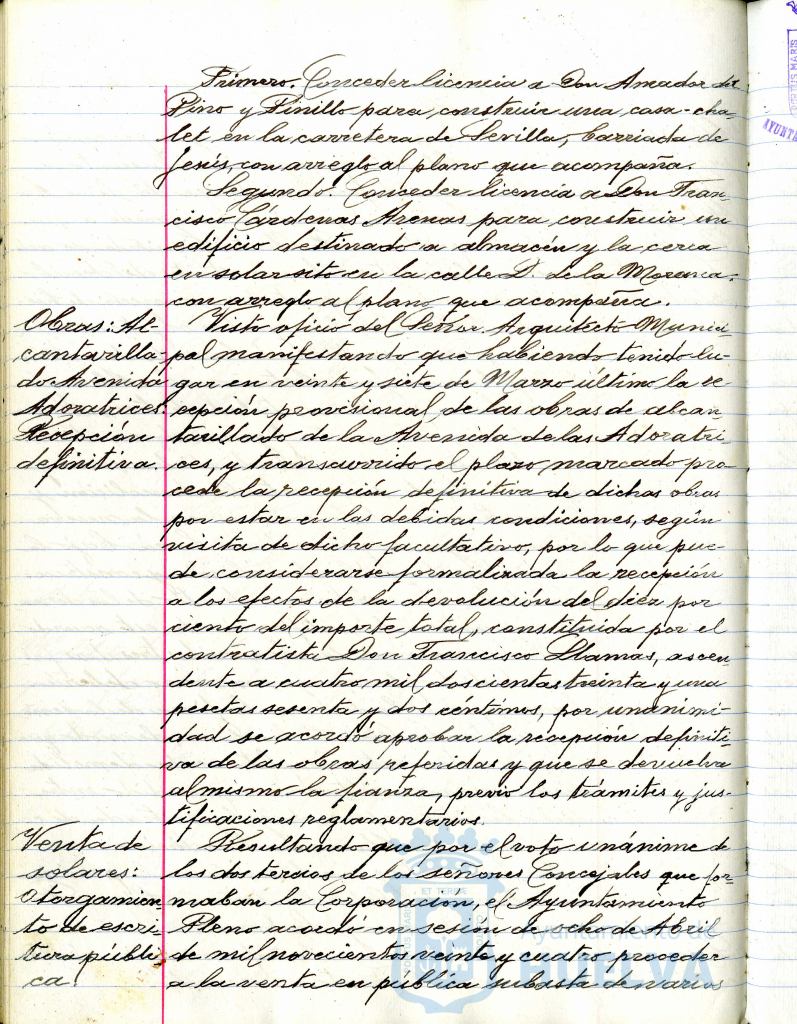 Primero. Conceder licencia a Don Amador del
Pino y Pinillo para construir una casa-cha-
let en la carretera de Sevilla, barriada de
Jesús, con arreglo al plano que acompaña.
Segundo. Conceder licencia a Don Fran-
cisco Cárdenas Arenas para construir un
edificio destinado a almacén y la cerca
en solar sito en la calle D. de la Moranca.
con arreglo al plano que acompaña.
Obras: Al-
cantarilla-
do Avenida
Adoratrices.
Recepción
definitiva.
Visto oficio del Señor Arquitecto Munici-
pal manifestando que habiendo tenido lu-
gar en veinte y siete de Marzo último la re-
cepción provisional de las obras de alcan-
tarillado de la Avenida de las Adoratri-
ces, y transcurrido el plazo marcado pro-
cede la recepción definitiva de dichas obras
por estar en las debidas condiciones, según
visita de dicho facultativo, por lo que pue-
de considerarse formalizada la recepción
a los efectos de la devolución del diez por
ciento del importe total, constituida por el
contratista Don Francisco Llamas, ascen-
dente a cuatro mil doscientas treinta y una
pesetas sesenta y dos céntimos, por unanimi-
dad se acordó aprobar la recepción definiti-
va de las obras referidas y que se devuelva
al mismo la fianza, previo los trámites y jus-
tificaciones reglamentarios.
Venta de
solares:
otorgamien
to de escri-
tura públi-
ca.
Resultando que por el voto unánime de
los dos tercios de los señores Concejales que for-
maban la Corporación, el Ayuntamiento
Pleno acordó en sesión de ocho de Abril
de mil novecientos veinte y cuatro proceder
a la venta en pública subasta de varios
Ayuntamiento de
HUELVA